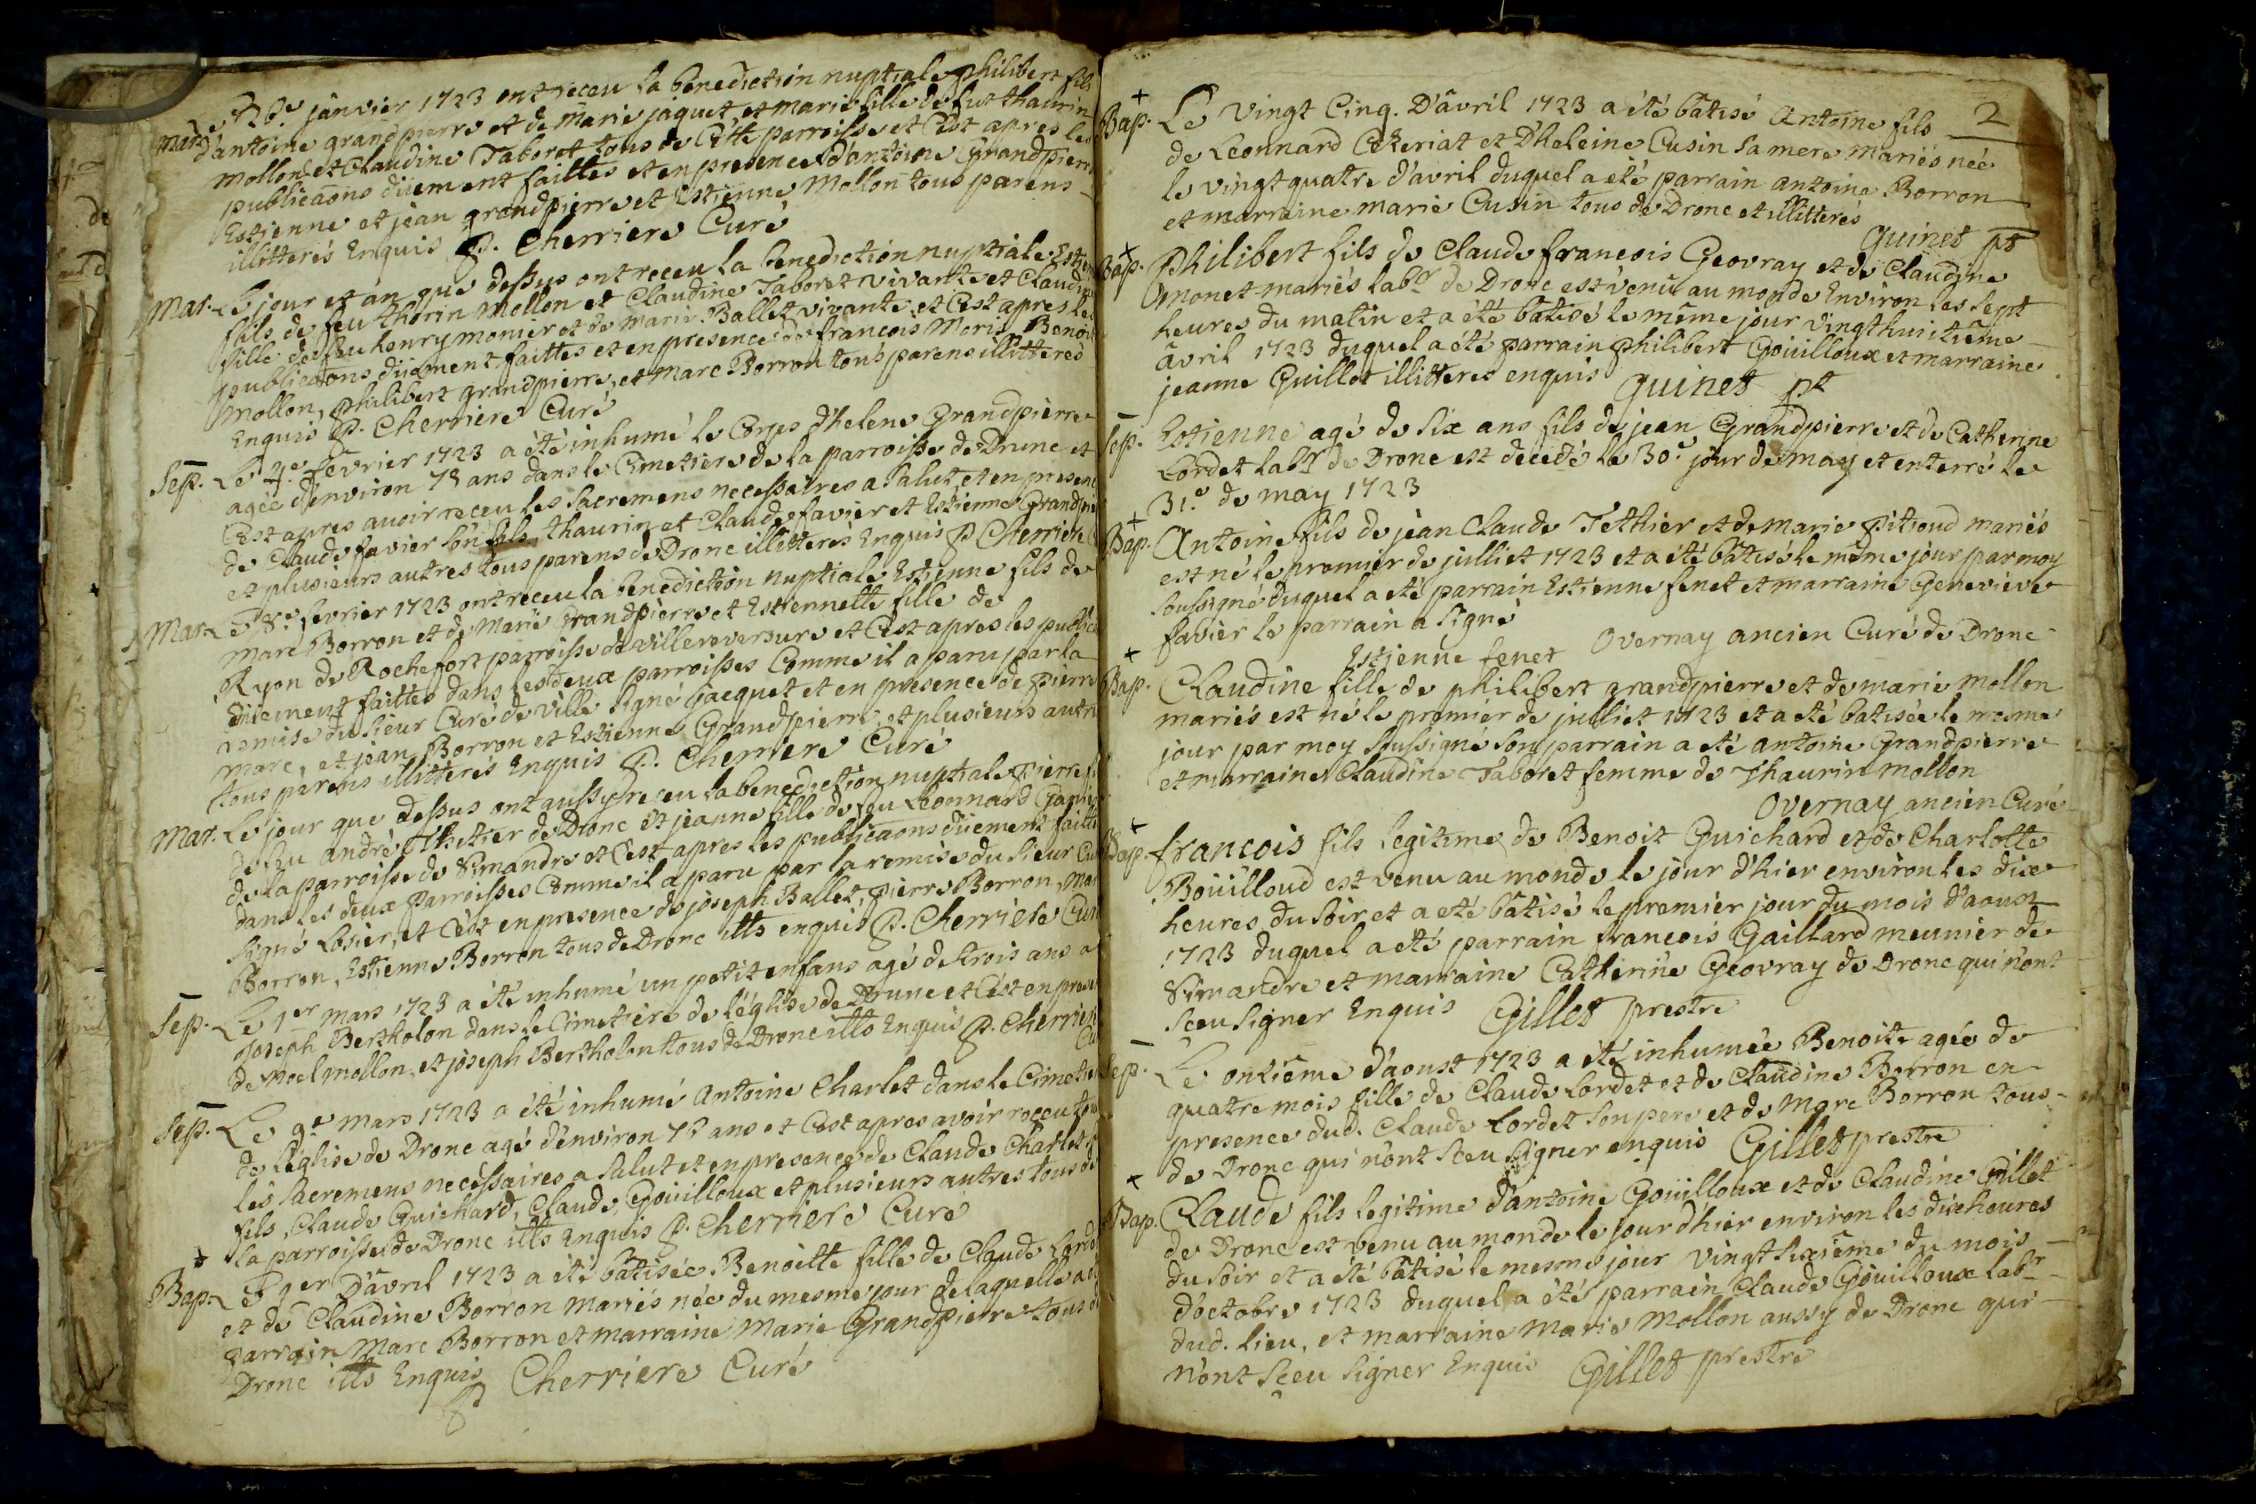 Mar. Le janvier 1723 ont receu la benediction nuptiale philibert fils
d'antoine grandpierre et de marie jaquet et marie fille de fut thaurin
mollon et Claudine Taboret tous de Cette parroisse et C'est apres les
publicaons düement faittes et en presence d'antoine Grandpierre
Estienne et jean grandpierre et Estienne Mollon tous parens
illitterés Enquis P. Cherriere Curé
Mar. Le jour et an que dessus ont receu la benediction nuptiale
fils de feu thorin Mollon et Claudine Taboret vivante et Claudine
fille de feu henry monier et de marie Ballet vivante et C'est apres les
publicaons düement faittes et en presence de francois Morie Benoit
Mollon, philibert grandpierre, et Marc Borron tous parens illitteres
Enquis P. Cherriere Curé
Sep. Le fevrier 1723 a été inhumé le Corps d'helene Grandpierre
agée d'environ 75 ans dans le Cimetiere de la parroisse de Drune et
C'est apres avoir receu les sacremens necessaires a salut, et en presence
de Claude favier son fils, thaurin et Claude favier et Estienne Grandpierre
et plusieurs autres tous parens de Drone illitterés Enquis P Cherriere
Mar. Le 8e fevrier 1723 ont receu la benediction nuptiale Estienne fils de
Marc Borron et de Marie Grandpierre et Estiennette fille de
Ryon de Rochefort parroisse de Villereversure et C'est apres les
düement faittes dans les deux parroisses Comme il a paru par la
remise du Sieur Curé de ville signé Jacquet et en presence de pierre
Marc, et jean Borron et Estienne Grandpierre et plusieurs autres
tous parens illitterés Enquis P. Cherriere Curé
Mar. Le jour que dessus ont aussy receu la benediction nuptiale pierre
de feu andré Thetier de Drone et jeanne fille de feu Leonnard
de la parroisse de Simandre et C'est apres les publicaons düement faittes
dans les deux parroisses Comme il a paru par la remise du Sieur Curé
signé Losier, et C'est en presence de joseph Ballet, pierre Borron, Marc
Borron, Estienne Borron tous de Drone illts enquis P. Cherriere Curé
Sep. Le 1er mars 1723 a été inhumé un petit enfans agé de trois ans a
Joseph Bertholon dans le Cimetiere de l'église de Drune et C'est en presence
de Noel mollon, et joseph Bertholon tous de Drone illts Enquis P. Cherriere
Curé
Sep. Le 9e mars 1723 a été inhumé Antoine Charlet dans le Cimetiere
de l'église de Drone agé d'environ 75 ans et C'est apres avoir receu tous
les sacremens necessaires a salut et en presence de Claude Charlet
fils, Claude Guichard, Claude Goüilloux et plusieurs autres tous de
la parroisse de Drone illts Enquis P. Cherriere Curé
Bap. Le 9er D'avril 1723 a été batisée Benoitte fille de Claude Lordet
et de Claudine Borron mariés née du mesme jour de laquelle a
parrain Marc Borron et marraine Marie Grandpierre tous de
Drone illts Enquis
P Cherriere Curé
2
Bap. Le vingt Cinq. D'avril 1723 a été batisé Antoine fils
de Leonnard Ceteriat et D'heleine Cusin sa mere mariés née
le vingtquatre d'avril duquel a été parrain antoine Borron
et marraine marie Cusin tous de Drone et illitterés
Guinet pt
Bap. Philibert fils de Claude francois Geovray et de Claudine
Monet mariés labr de Drone est venu au monde Environ les sept
heures du matin et a été batisé le même jour vingt huitiême
avril 1723 duquel a été parrain Philibert Goüilloux et marraine
jeanne Guillot illitteres enquis Guinet pt
Sep. Estienne agé de six ans fils de jean Grandpierre et de Catherine
Lordet labr de Drone est decedé le 30e jour de may et enterré le
31e de may 1723
Bap. Antoine fils de jean Claude Tethier et de marie pitioud mariés
est né le premier de julliet 1723 et a été batisé le même jour par moy
soussigné duquel a été parrain Estienne fenet et marraine Genevieve
favier le parrain a signé
Estienne fenet Overnay ancien Curé de Drone
Bap. Claudine fille de philibert grandpierre et de marie mollon
mariés est né le premier de julliet 1723 et a été batisée le mesme
jour par moy soussigné son parrain a eté antoine Grandpierre
et marraine Claudine Taboret femme de Thaurin mollon
Overnay ancien Curé
Bap. francois fils legitime de Benoit Guichard et de Charlotte
Boüilloud est venu au monde le jour d'hier environ les dix
heures du soir et a eté batisé le premier jour du mois d'aoust
1723 duquel a été parrain francois Gaillard meunier de
Simandre et marraine Catherine Geovray de Drone qui n'ont
sceu signer Enquis Gillet prestre
Sep. Le ontiême d'aoust 1723 a été inhumée Benoite agée de
quatre mois fille de Claude Lordet et de Claudine Borron en
presence dud. Claude Lordet son pere et de Marc Borron tous
de Drone qui n'ont sceu signer enquis Gillet prestre
Bap. Claude fils legitime d'antoine Goüilloux et de Claudine Gillet
de Drone est venu au monde le jour d'hier environ les dix heures
du soir et a été batisé le mesme jour vingt sixiême du mois
d'octobre 1723 duquel a été parrain Claude Goüilloux labr
dud. lieu, et marraine Marie Mollon aussy de Drone qui
n'ont sceu signer Enquis Gillet prestre